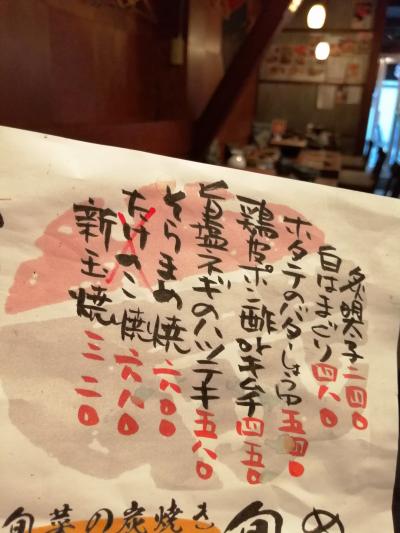 炙明太子 二四〇
白はまぐり 四八〇
ホタテのバターしょうゆ 五四〇
鶏皮ポン酢orキムチ 四五〇
旨塩ネギのハツテキ 五八〇
そらまめ焼 六〇〇
たけのこ焼 六八〇
新玉焼 三二〇
旬菜の炭焼き